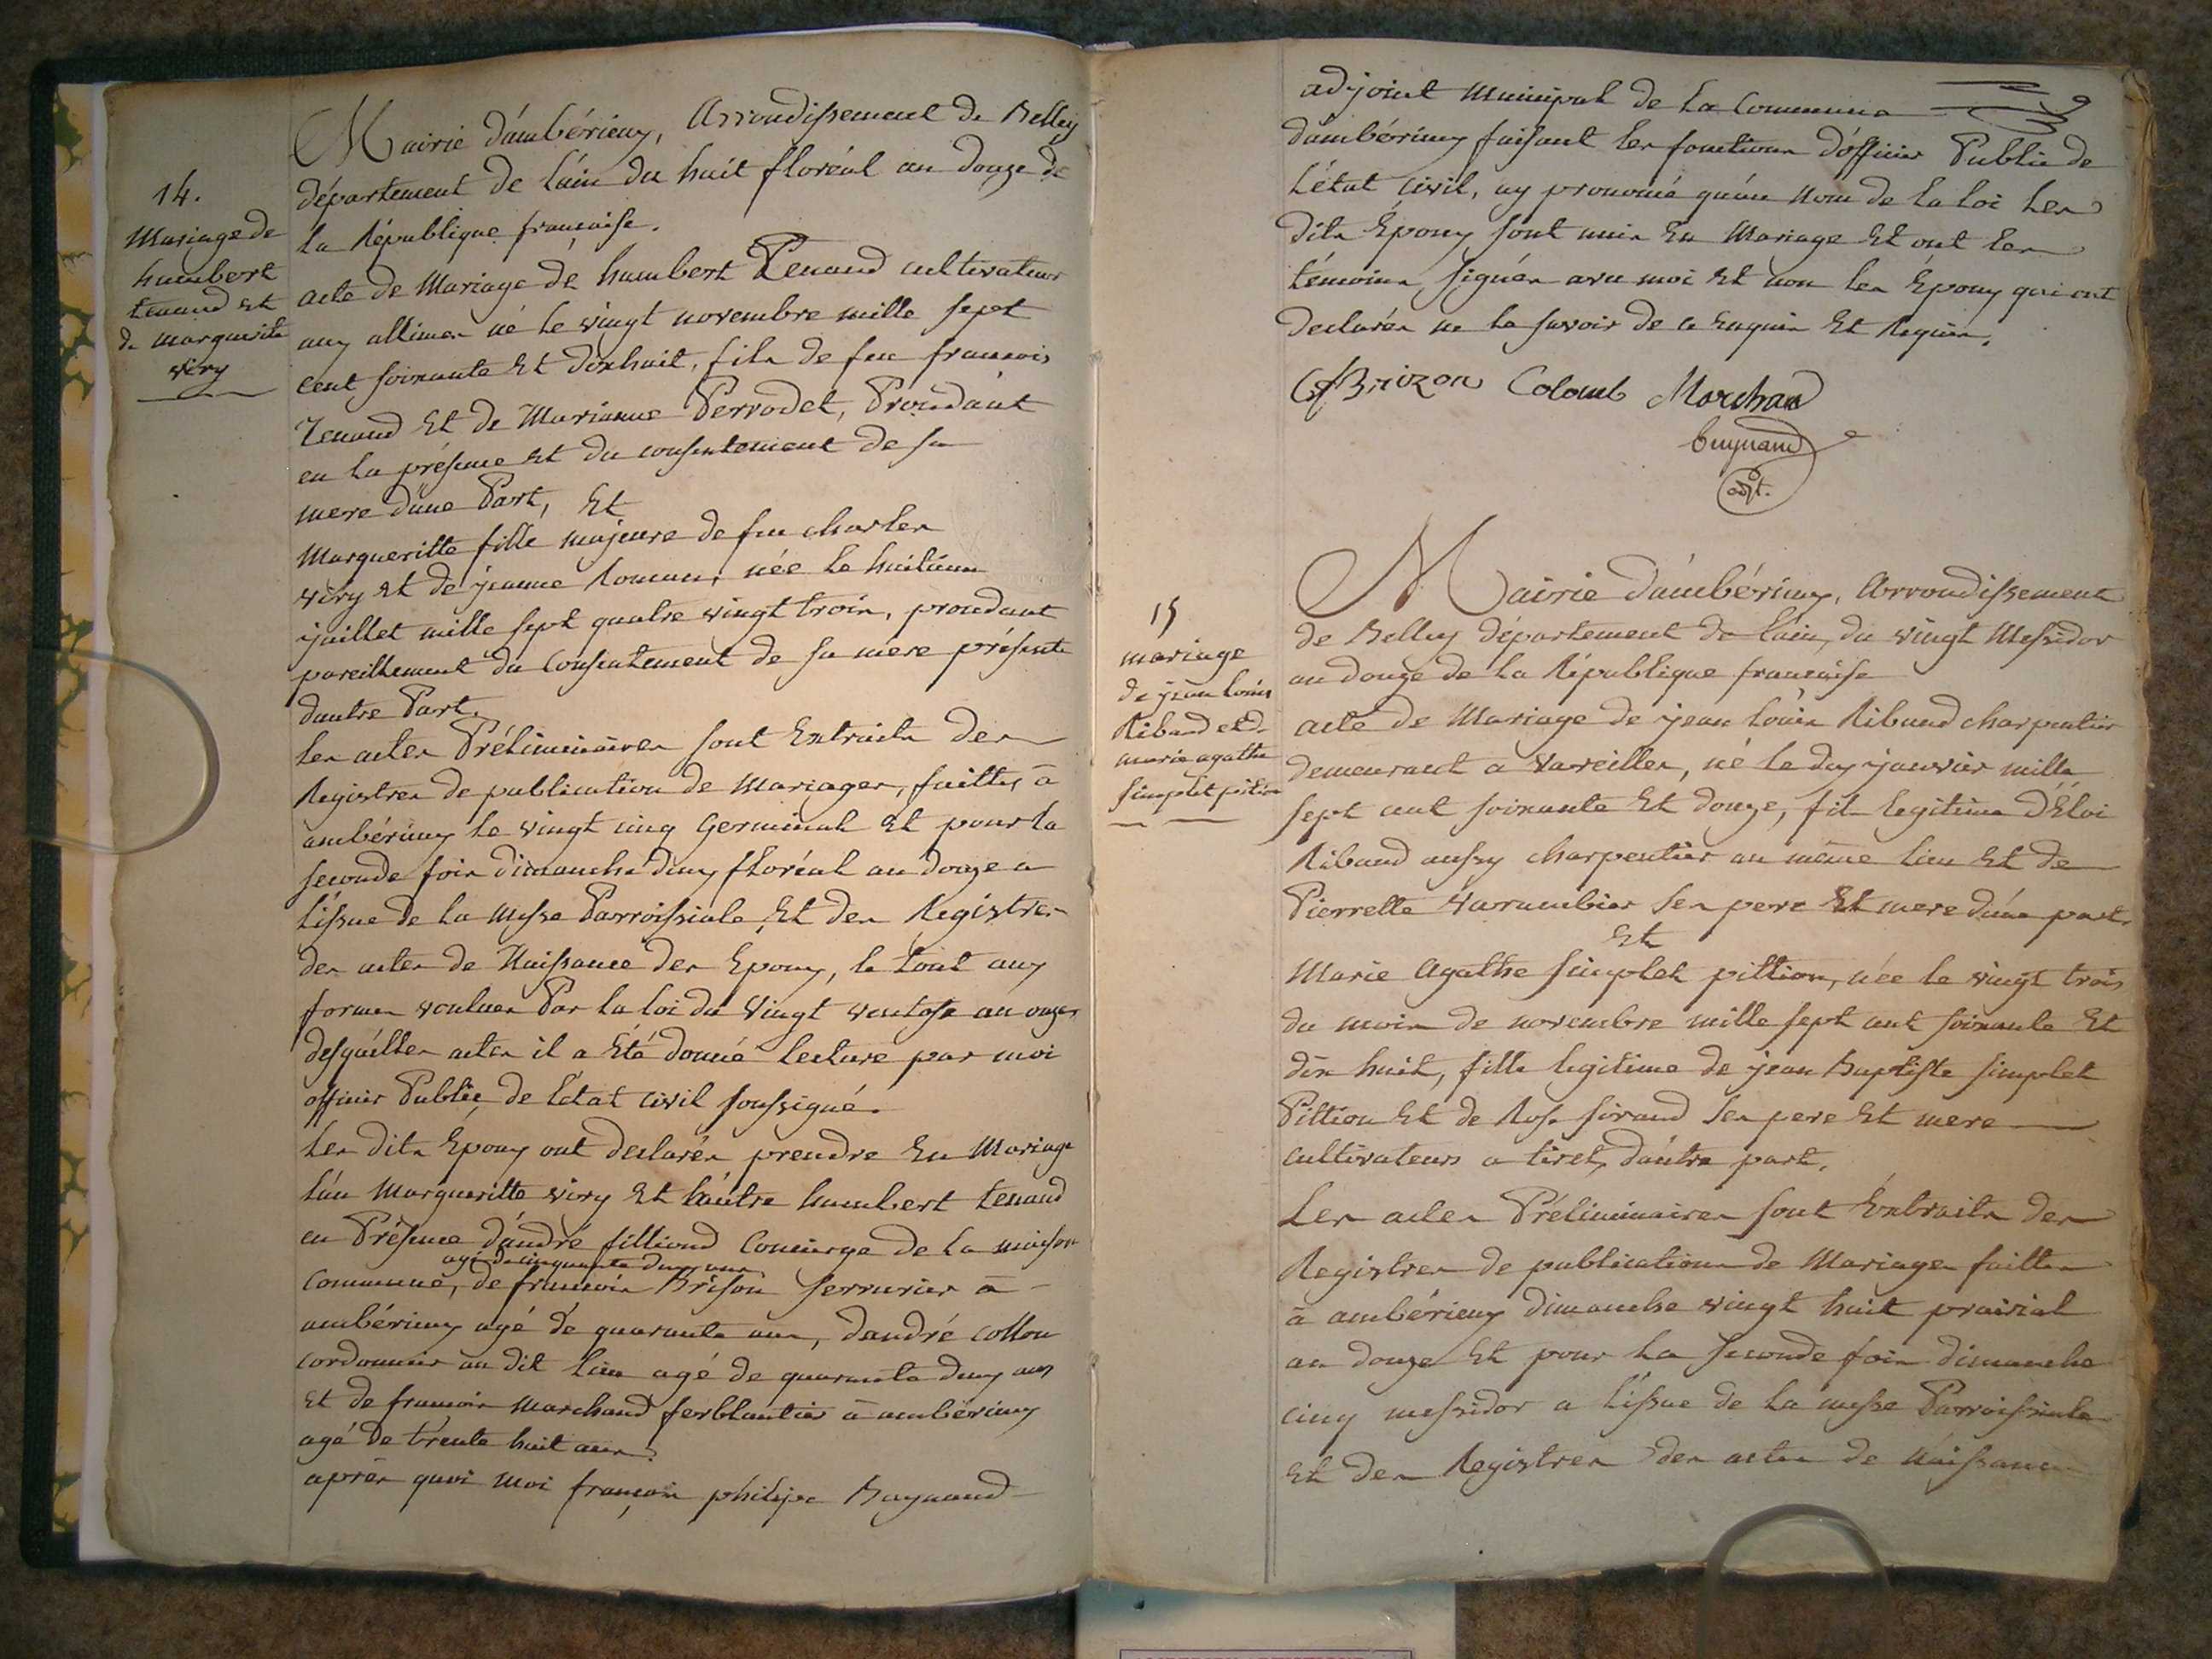 14.
Mariage de
humbert
tenand et
de marguerite
viry
Mairie d'ambérieux, Arrondissement de Belley
département de l'ain du huit floréal an douze de
la République française.
acte de Mariage de humbert Tenand cultivateur
aux allimes né le vingt novembre mille sept
cent soixante et dixhuit, fils de feu francois
Tenand et de Marianne Perrodet, Procédant
en la présence et du consentement de sa
mere d'une Part, Et
Margueritte fille majeure de feu charles
viry et de jeanne Roman, née le huitieme
juillet mille sept quatre vingt trois, procédant
pareillement du Consentement de sa mere présente
dautre Part.
les actes Préliminaires sont Extraits des
Registres de publication de Mariages, faittes à
ambérieux le vingt cinq Germinal et pour la
seconde fois dimanche deux floréal an douze a
l'issue de la Messe Parroissiale, et des Registres
des actes de Naissance des Epoux, le tout aux
formes voulues Par la loi du vingt ventose an onze,
desquelles actes il a Eté donné lecture par moi
officier Public de l'état civil soussigné.
Les dits Epoux ont declarés prendre En Mariage
l'un Margueritte viry et l'autre humbert tenand
en Présence d'andré filliond Concierge de la maison
agé de cinquante deux ans
commune, de francois Brison serrurier à
ambérieux agé de quarante ans, dandré collon
cordonnier au dit lieu agé de quarante deux ans
et de francois marchand ferblantier à ambérieux
agé de trente huit ans.
après quoi moi françois philipe Buynand
adjoint Municipal de la Commune
d'ambérieux faisant les fonctions d'officier Public de
l'état civil, ay prononcé qu'au nom de la loi les
dits Epoux sont unis En Mariage et ont les
témoins signés avec moi et non les Epoux qui ont
declarés ne le savoir de ce Enquis et Requis.
Brizon Colomb Marchand
buynand
adjt.
15
mariage
de jean louis
Ribaud et de
marie agathe
simplet pition
Mairie d'ambérieux, Arrondissement
de Belley département de l'ain, du vingt Messidor
an douze de la République française
acte de Mariage de jean louis Ribaud charpentier
demeurant a Vareilles, né le dix janvier mille
sept cent soixante et douze, fils legitime d'Eloi
Ribaud aussy charpentier au même lieu et de
Pierrette Varambier ses pere et mere d'une part.
Et
Marie Agathe simplet pittion, née le vingt trois
du mois de novembre mille sept cent soixante et
dix huit, fille legitime de jean Baptiste simplet
Pittion et de Rose sirand ses pere et mere
cultivateurs a tiret, d'autre part.
Les actes Préliminaires sont Extraits des
Registres de publications de Mariages faittes
à ambérieux dimanche vingt huit prairial
an douze et pour la seconde fois dimanche
cinq messidor a l'issue de la messe Parroissiale
et des Registres des actes de Naissance